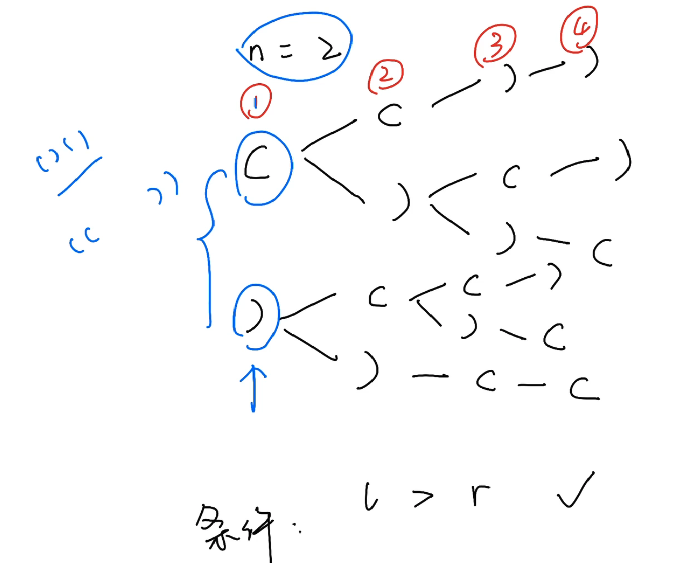 n = 2
① ② ③ ④
( ( ) )
()()
) ) (
( ) ( )
((
) ( ( )
) (
) ( ( (
条件: l > r ✓